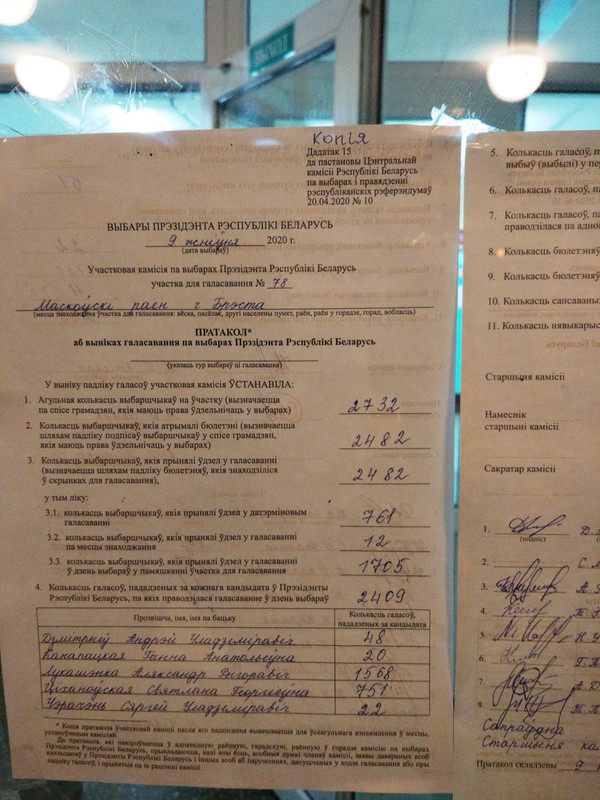 ВЫХОД
Копія
Дадатак 15
да пастановы Цэнтральнай
камісіі Рэспублікі Беларусь
па выбарах і правядзенні
рэспубліканскіх рэферэндумаў
20.04.2020 № 10
ВЫБАРЫ ПРЭЗІДЭНТА РЭСПУБЛІКІ БЕЛАРУСЬ
9 жніўня 2020 г.
(дата выбараў)
Участковая камісія па выбарах Прэзідэнта Рэспублікі Беларусь
участка для галасавання № 78
Маскоўскі раен г Брэста
(месца знаходжання участка для галасавання: вёска, пасёлак, другі населены пункт, раён, раён у горадзе, горад, вобласць)
ПРАТАКОЛ*
аб выніках галасавання па выбарах Прэзідэнта Рэспублікі Беларусь
(указаць тур выбараў ці галасавання)
У выніку падліку галасоў участковая камісія ЎСТАНАВІЛА:
1. Агульная колькасць выбаршчыкаў на ўчастку (вызначаецца
па спісе грамадзян, якія маюць права ўдзельнічаць у выбарах) 2732
2. Колькасць выбаршчыкаў, якія атрымалі бюлетэні (вызначаецца
шляхам падліку подпісаў выбаршчыкаў у спісе грамадзян,
якія маюць права ўдзельнічаць у выбарах) 2482
3. Колькасць выбаршчыкаў, якія прынялі ўдзел у галасаванні
(вызначаецца шляхам падліку бюлетэняў, якія знаходзіліся
ў скрынках для галасавання), 2482
у тым ліку:
3.1. колькасць выбаршчыкаў, якія прынялі ўдзел у датэрміновым
галасаванні 761
3.2. колькасць выбаршчыкаў, якія прынялі ўдзел у галасаванні
па месцы знаходжання 12
3.3. колькасць выбаршчыкаў, якія прынялі ўдзел у галасаванні
ў дзень выбараў у памяшканні ўчастка для галасавання 1705
4. Колькасць галасоў, пададзеных за кожнага кандыдата ў Прэзідэнты
Рэспублікі Беларусь, па якіх праводзілася галасаванне ў дзень выбараў 2409
Прозвішча, імя, імя па бацьку Колькасць галасоў,
пададзеных за кандыдата
Дзмітрыеў Андрэй Уладзіміравіч 48
Канапацкая Ганна Анатольеўна 20
Лукашэнка Аляксандр Рыгоравіч 1568
Ціханоўская Святлана Георгіеўна 751
Чэрачэнь Сяргей Уладзіміравіч 22
* Копія пратакола ўчастковай камісіі пасля яго падпісання вывешваецца для ўсеагульнага азнаямлення ў месцы,
устаноўленым камісіяй.
Да пратакола, які накіроўваецца ў адпаведную раённую, гарадскую, раённую ў горадзе камісію па выбарах
Прэзідэнта Рэспублікі Беларусь, прыкладаюцца, калі яны ёсць, асобныя думкі членаў камісіі, заявы давераных асоб
кандыдатаў у Прэзідэнты Рэспублікі Беларусь і іншых асоб аб парушэннях, дапушчаных у ходзе галасавання або пры
падліку галасоў, і прынятыя па іх рашэнні камісіі.
5. Колькасць галасоў, п
выбыў (выбылі) у пе
6. Колькасць галасоў, па
7. Колькасць галасоў, па
праводзілася па адно
8. Колькасць бюлетэняў
9. Колькасць бюлетэняў
10. Колькасць сапсаваных
11. Колькасць нявыкарыс
Старшыня камісіі
Намеснік
старшыні камісіі
Сакратар камісіі
1.
(подпіс)
2.
3.
4.
5.
6.
7.
8.
Сапраўдна
Старшыня ка
Пратакол складзены 9